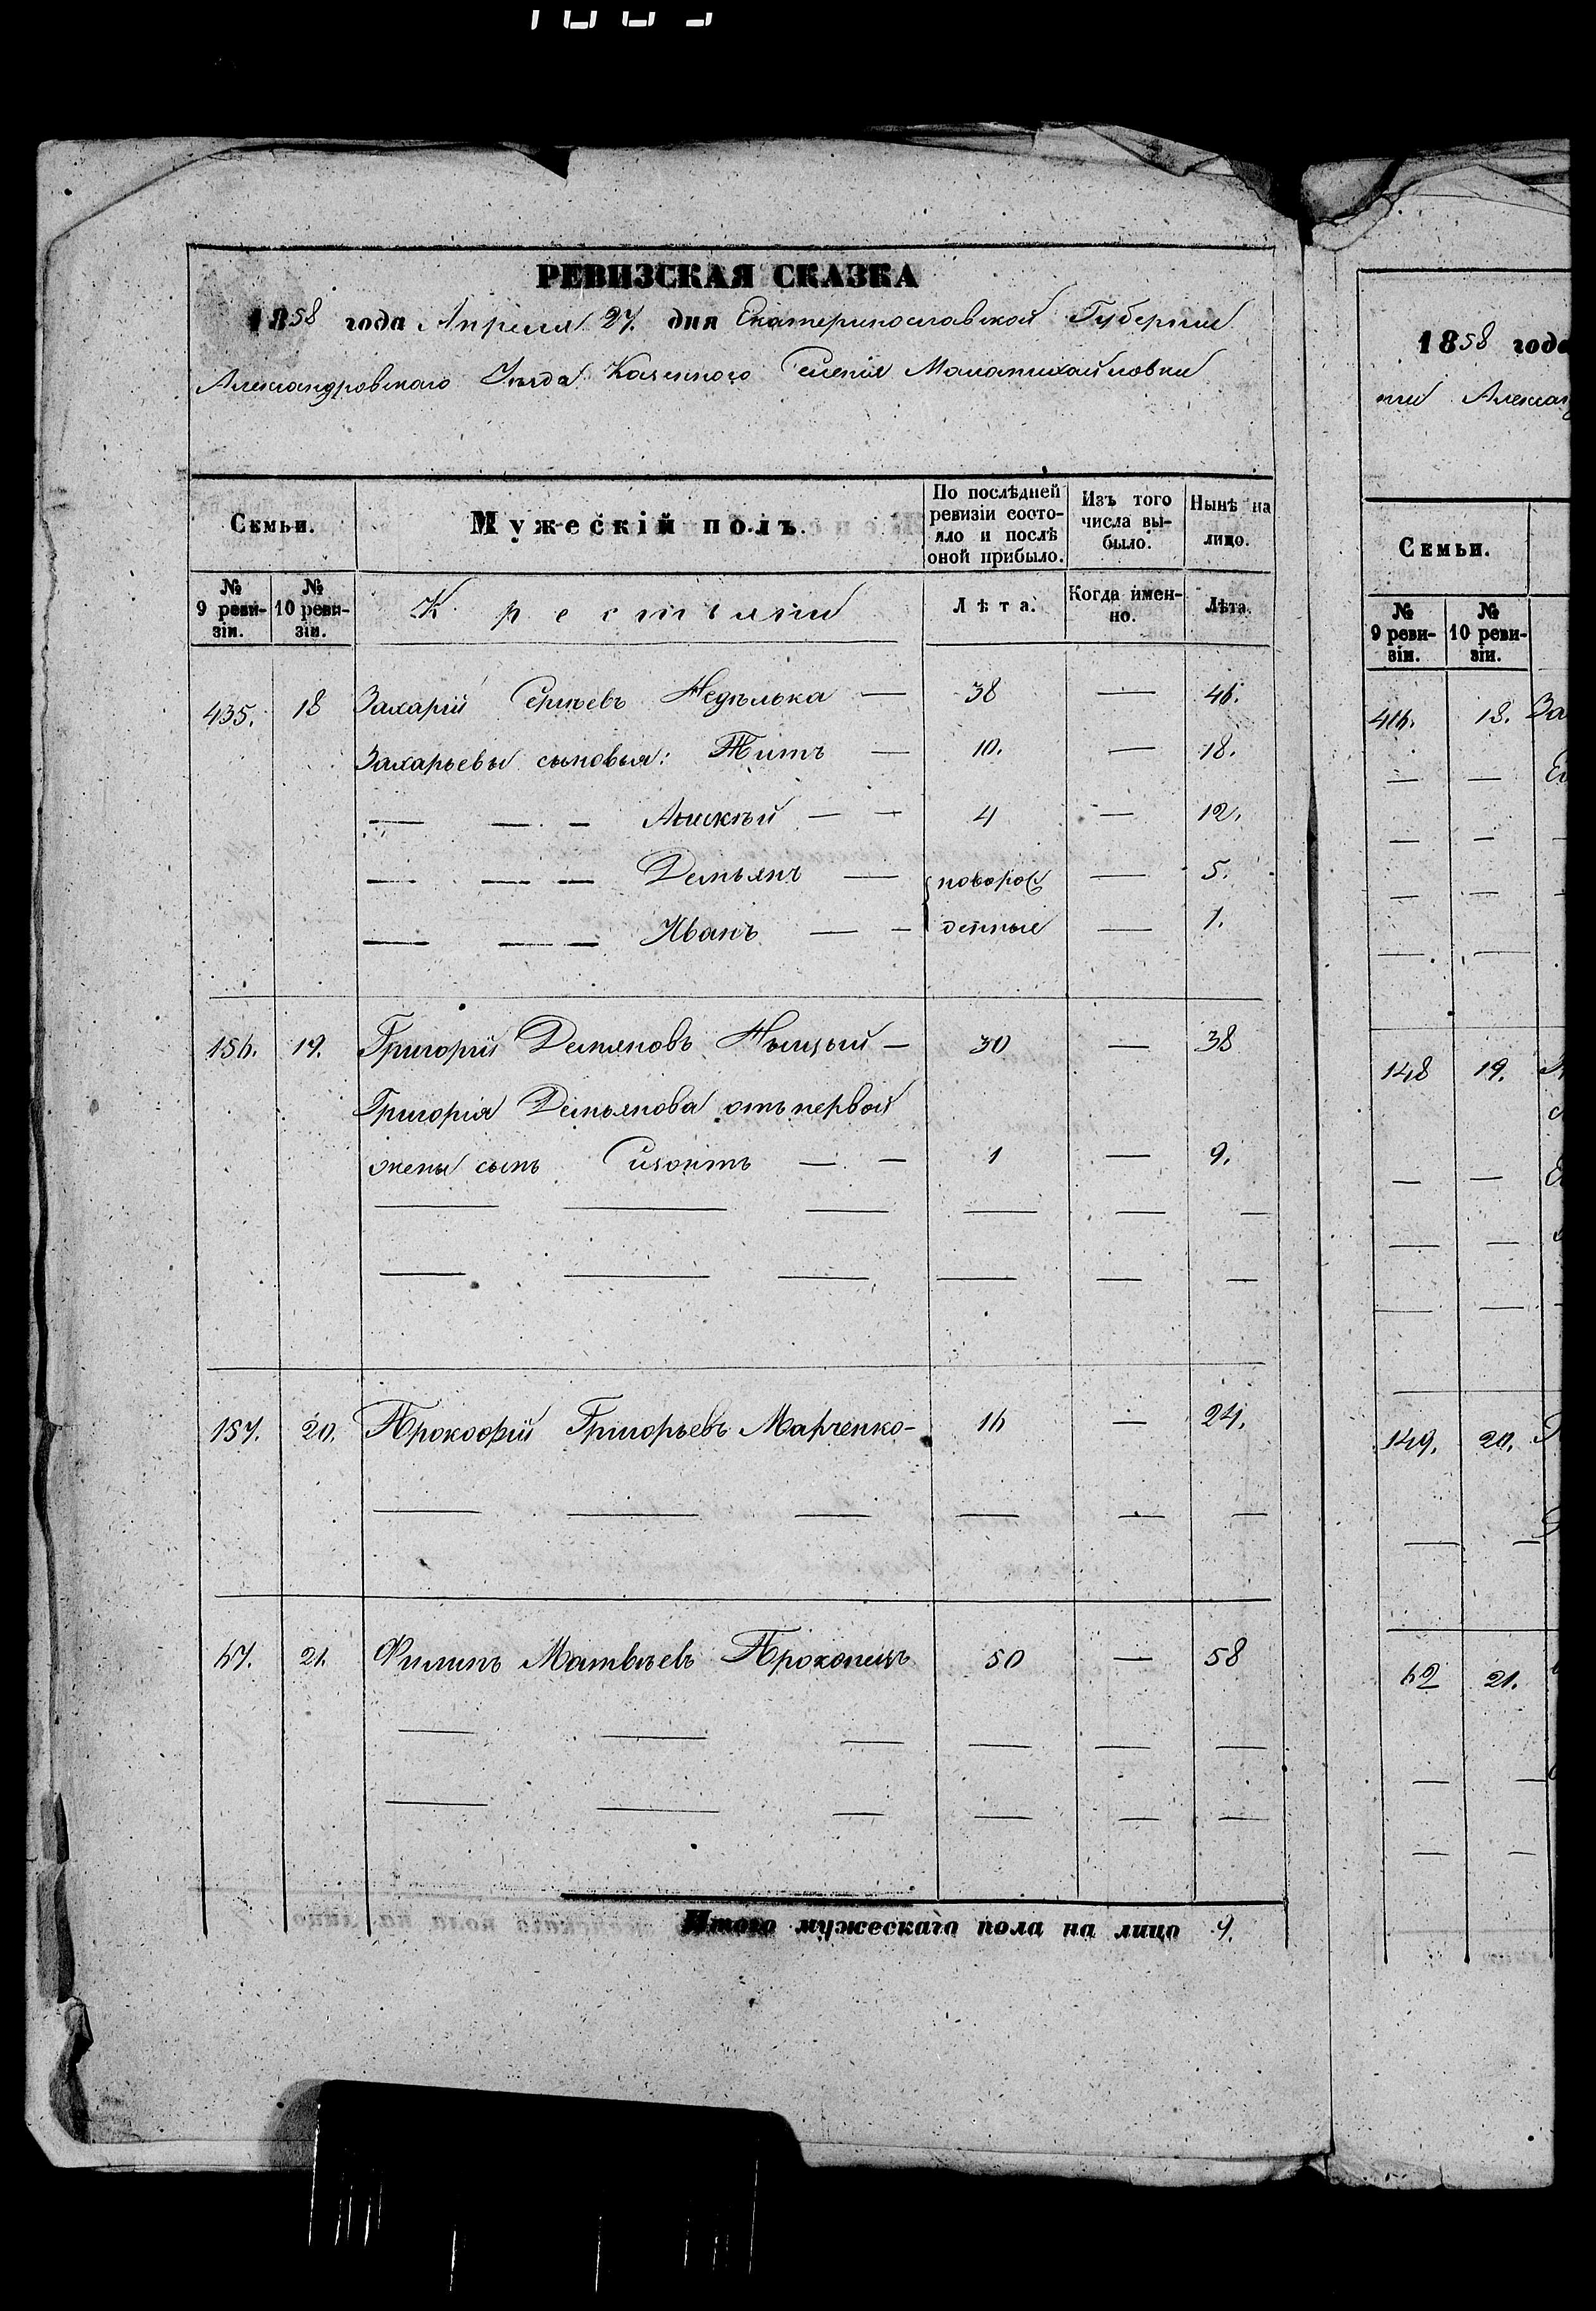 РЕВИЗСКАЯ СКАЗКА
1858 года Апреля 27. дня Екатеринославской Губерніи
Александровскаго Уѣзда Казенного Селенія Маломихайловки
Семьи. Мужескій полъ. По послѣдней ревизіи состояло и послѣ оной прибыло. Изъ того числа выбыло. Нынѣ на лицо.
№ 9 ревизіи. № 10 ревизіи. Крестьяни Лѣта. Когда именно. Лѣта.
435. 18 Захарій Сергѣевъ Недѣлька — 38 — 46.
Захарьевы сыновья: Титъ — 10. — 18.
— — — Алексѣй — — 4 — 12.
— — — Демьянъ — новорож — 5.
— — — Иванъ — — денные — 1.
156. 19. Григорій Демяновъ — 30 — 38
Григорія Демьянова отъ первой
жены сынъ — — 1 — 9.
— — — — — —
— — — — — —
157. 20. Прокофій Григорьевъ Марченко — 16 — 24.
— — — — — —
67. 21. Филипъ Матвѣевъ Прокопецъ 50 — 58
— — — — — —
— — — — — —
Итого мужескаго пола на лицо 9.
1858 года
ніи Алексан
Семьи.
№ 9 ревизіи. № 10 ревизіи.
416. 18. За
— — Ег
— — —
— — —
— —
148 19.
— —
— —
— —
149. 20.
— —
62 21.
— —
— —